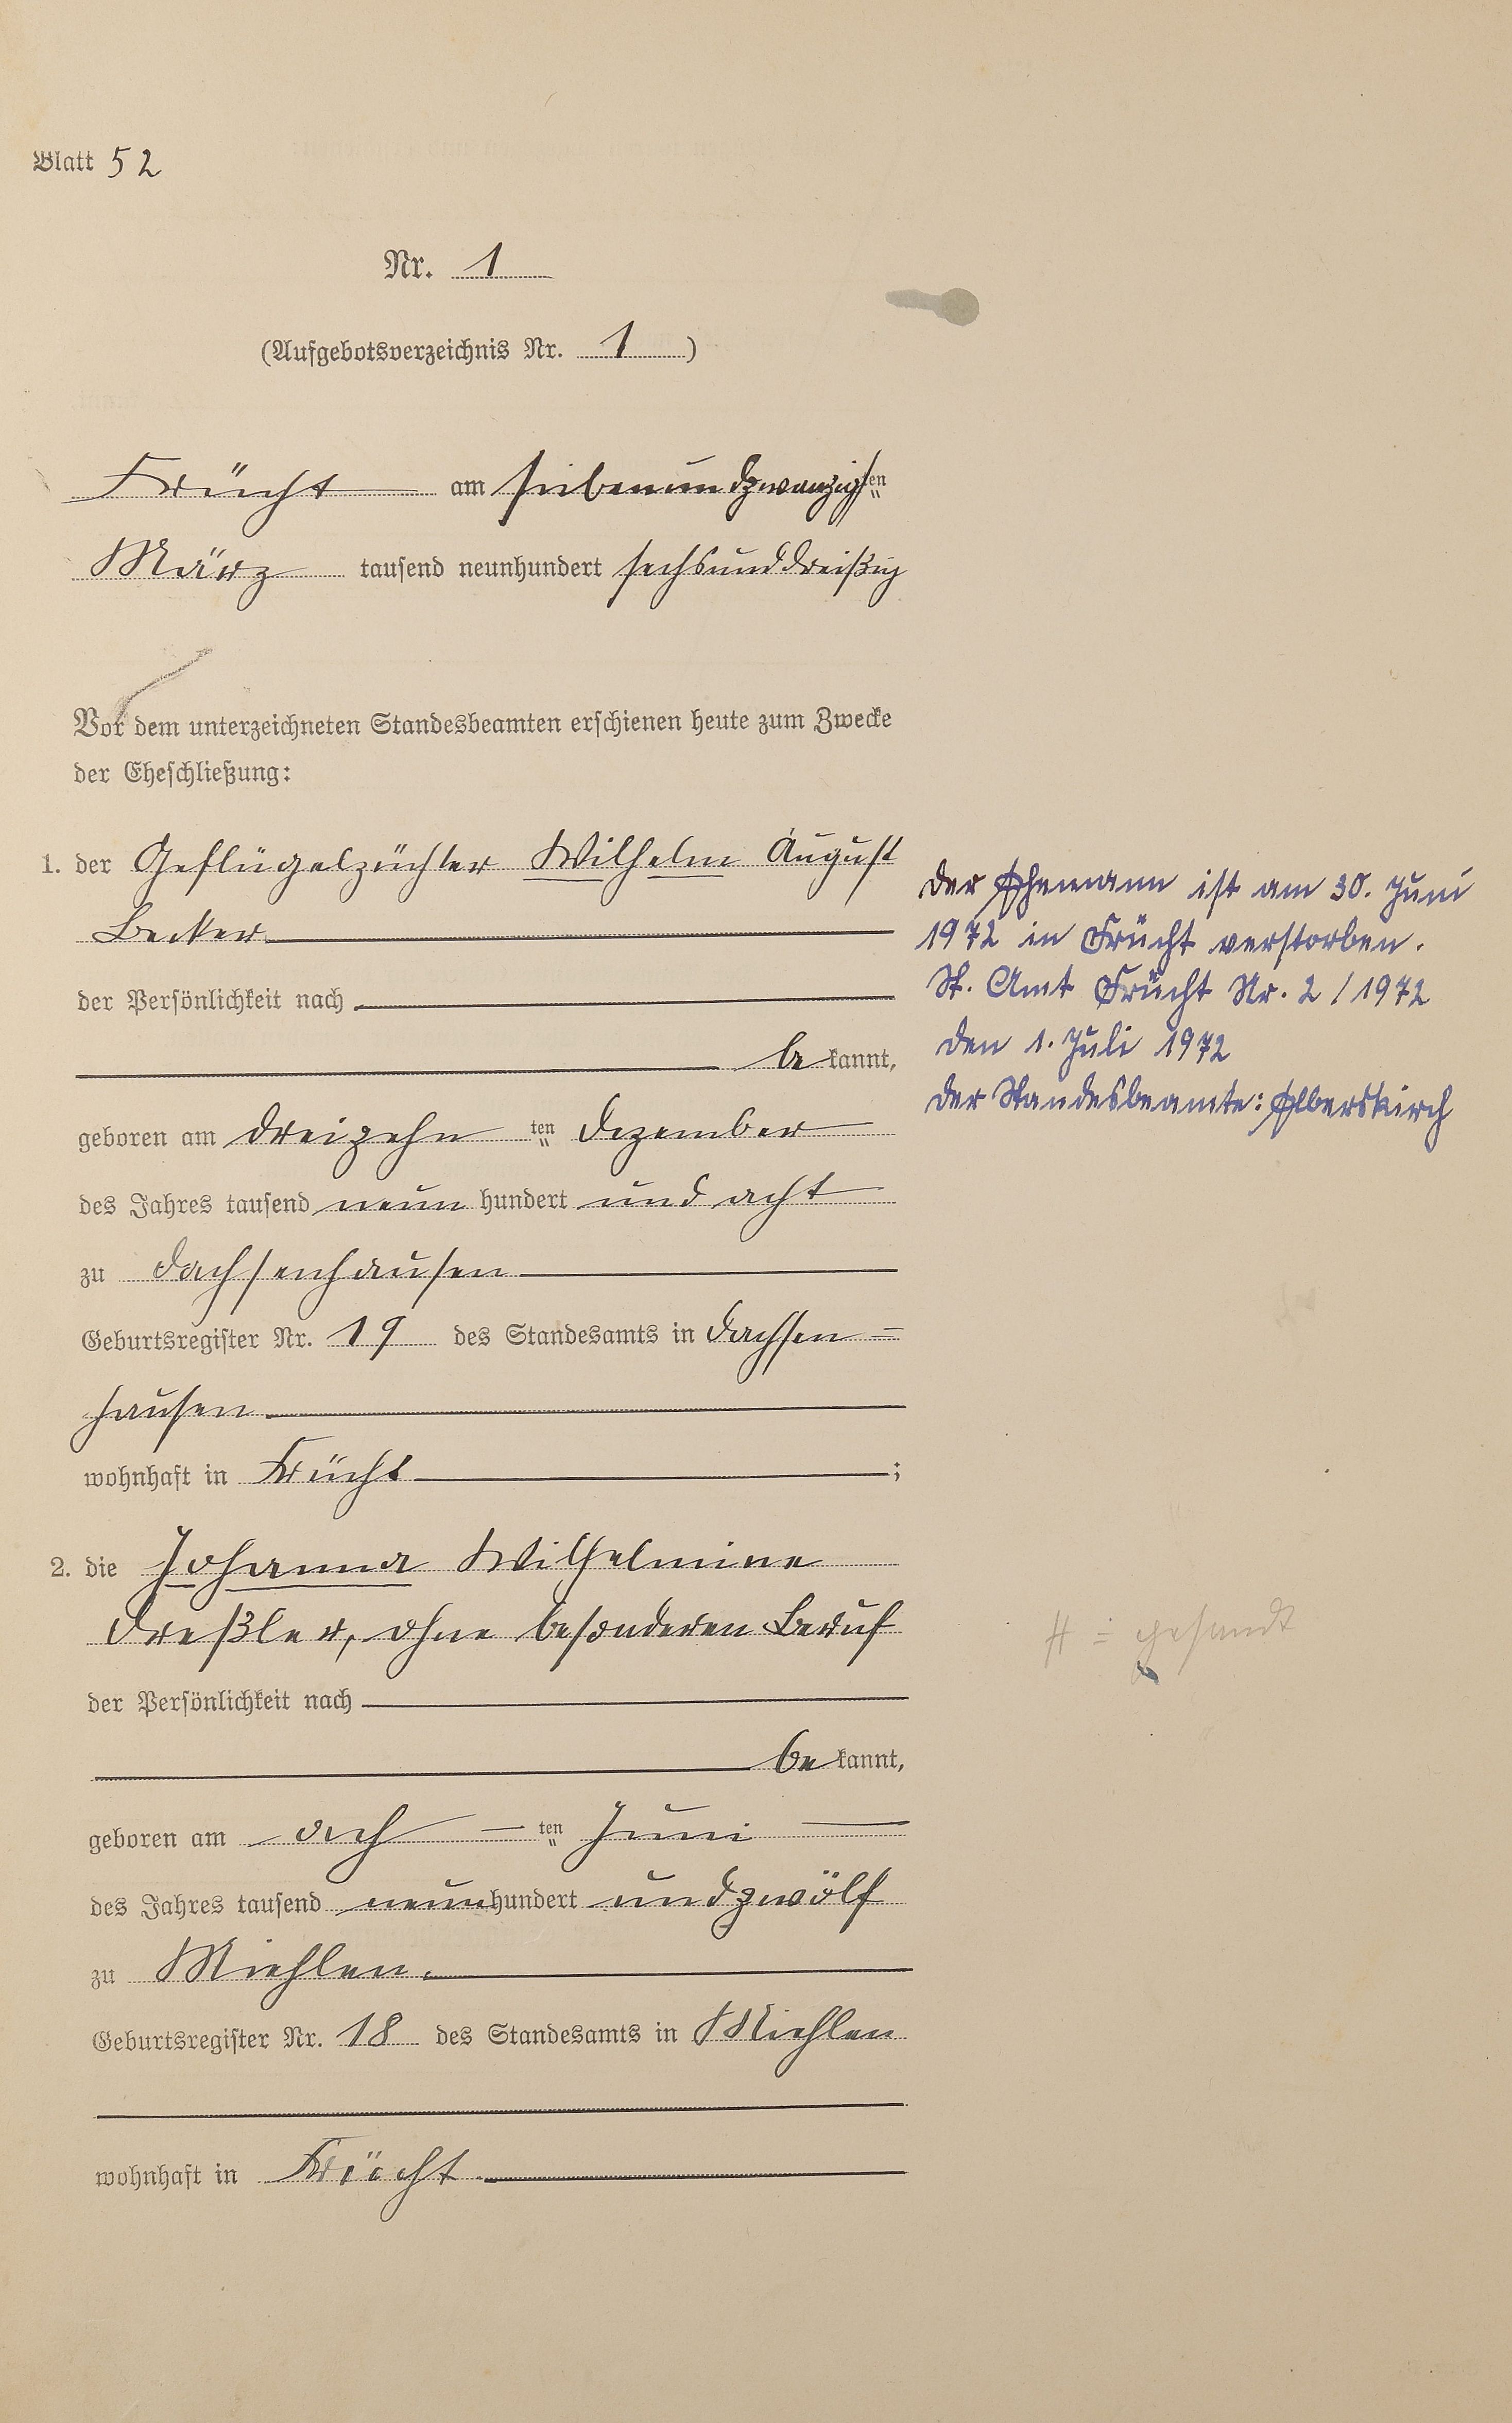 Blatt 52
Nr. 1
(Aufgebotsverzeichnis Nr. 1)
Frücht am siebenundzwanzigsten
März tausend neunhundert sechsunddreißig
Vor dem unterzeichneten Standesbeamten erschienen heute zum Zwecke
der Eheschließung:
1. der Geflügelzüchter Wilhelm August
Becker
der Persönlichkeit nach
be kannt,
geboren am dreizehn ten Dezember
des Jahres tausend neun hundert und acht
zu Dachsenhausen
Geburtsregister Nr. 19 des Standesamts in Dachsen=
hausen
wohnhaft in Frücht ;
Der Ehemann ist am 30. Juni
1972 in Frücht verstorben.
St. Amt Frücht Nr. 2 / 1972
den 1. Juli 1972
Der Standesbeamte: Elberskirch
2. die Johanna Wilhelmine
Dreßler, ohne besonderen Beruf
der Persönlichkeit nach
be kannt,
geboren am ach ten Juni
des Jahres tausend neun hundert und zwölf
zu Miehlen.
Geburtsregister Nr. 18 des Standesamts in Miehlen
wohnhaft in Frücht
gesandt